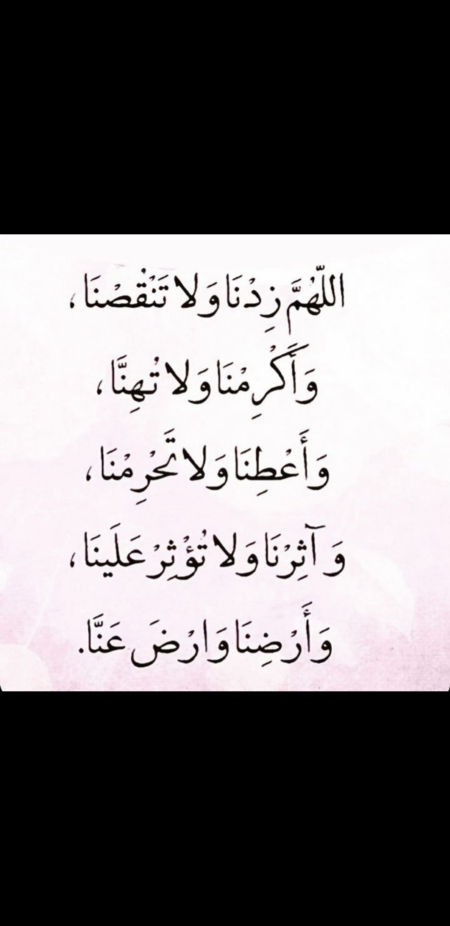 اللّٰهُمَّ زِدْنَا وَلا تَنْقُصْنَا،
وَأَكْرِمْنَا وَلا تُهِنَّا،
وَأَعْطِنَا وَلا تَحْرِمْنَا،
وَآثِرْنَا وَلا تُؤْثِرْ عَلَينَا،
وَأَرْضِنَا وَارْضَ عَنَّا.